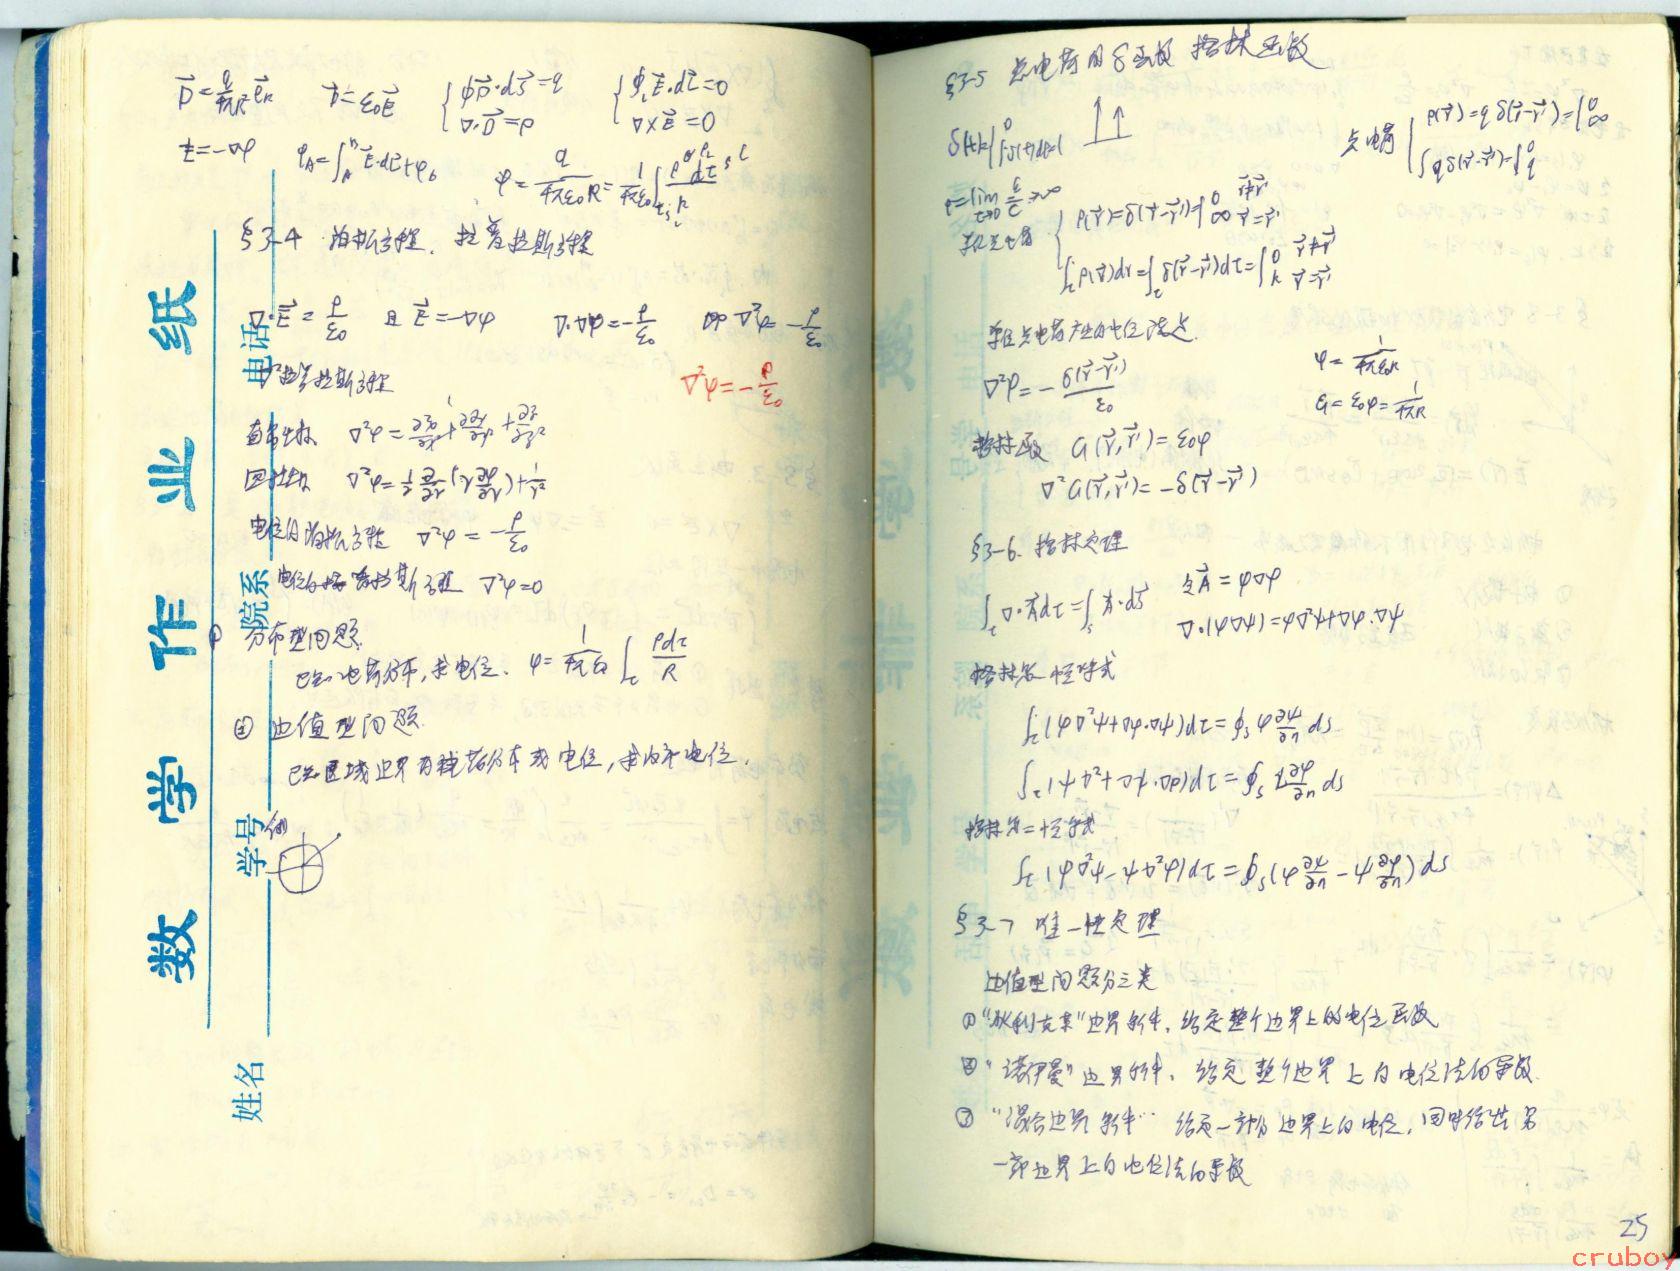 D⃗ = q/4πR² e⃗_R  D⃗ = ε₀E⃗  { ∮D⃗·dS⃗ = q  { ∮_l E⃗·dl⃗ = 0
∇·D⃗ = ρ  ∇×E⃗ = 0
E = -∇φ  φ_A = ∫_A E⃗·dl⃗ + φ₀  φ = q/4πε₀R = 1/4πε₀ ∫ ρdτ/R
§3-4 泊松方程. 拉普拉斯方程
∇·E⃗ = ρ/ε₀ 且 E⃗ = -∇φ  ∇·∇φ = -ρ/ε₀  即 ∇²φ = -ρ/ε₀
拉普拉斯方程  ∇²φ = -ρ/ε₀
直角坐标 ∇²φ = ∂²φ/∂x² + ∂²φ/∂y² + ∂²φ/∂z²
圆柱坐标 ∇²φ = 1/r ∂/∂r (r ∂φ/∂r) + 1/r²
电位的泊松方程 ∇²φ = -ρ/ε₀
电位的拉普拉斯方程 ∇²φ = 0
① 分布型问题.
已知电荷分布, 求电位. φ = 1/4πε₀ ∫_τ ρdτ/R
② 边值型问题.
例
数学作业纸
电话
院系
学号
姓名
§3-5 点电荷的δ函数 格林函数
点电荷 { ρ(r⃗) = qδ(r⃗-r⃗') = { 0 ∞
∫qδ(r⃗-r⃗') = { 0 q
单位点电荷 { ρ(r⃗) = δ(r⃗-r⃗') = { 0 r⃗≠r⃗' ∞ r⃗=r⃗'
∫_τ ρ(r⃗)dτ = ∫_τ δ(r⃗-r⃗')dτ = { 0 r⃗≠r⃗'
单位点电荷产生的电位
φ = 1/4πε₀R
∇²φ = -δ(r⃗-r⃗')/ε₀
G = ε₀φ = 1/4πR
格林函数 G(r⃗,r⃗') = ε₀φ
∇²G(r⃗,r⃗') = -δ(r⃗-r⃗')
§3-6. 格林定理
∫_τ ∇·A⃗dτ = ∫_s A⃗·dS⃗  令A⃗ = φ∇ψ
∇·(φ∇ψ) = φ∇²ψ+∇φ·∇ψ
格林第一恒等式
∫_τ (φ∇²ψ+∇φ·∇ψ)dτ = ∮_s φ ∂ψ/∂n ds
∫_τ (ψ∇²+∇ψ·∇φ)dτ = ∮_s ψ ∂φ/∂n ds
格林第二恒等式
∫_τ (φ∇²ψ-ψ∇²φ)dτ = ∮_s (φ ∂ψ/∂n - ψ ∂φ/∂n) ds
§3-7 唯一性定理
边值型问题分三类
① "狄利克莱"边界条件. 给定整个边界上的电位函数
② "诺伊曼"边界条件. 给定整个边界上的电位法向导数
③ "混合边界条件" 给定一部分边界上的电位, 同时给其另
一部边界上的电位法向导数
25
cruboy